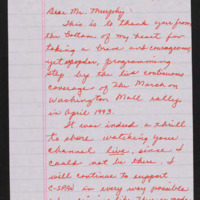 Dear Mr. Murphy:
This is to thank you from
the bottom of my heart for
taking a brave and courageous,
yet popular, programming
step by the live continuous
coverage of the March on
Washington Mall rally
in April 1993.
It was indeed a thrill
to share watching your
channel live, since I
could not be there. I
will continue to support
C-SPAN in every way possible